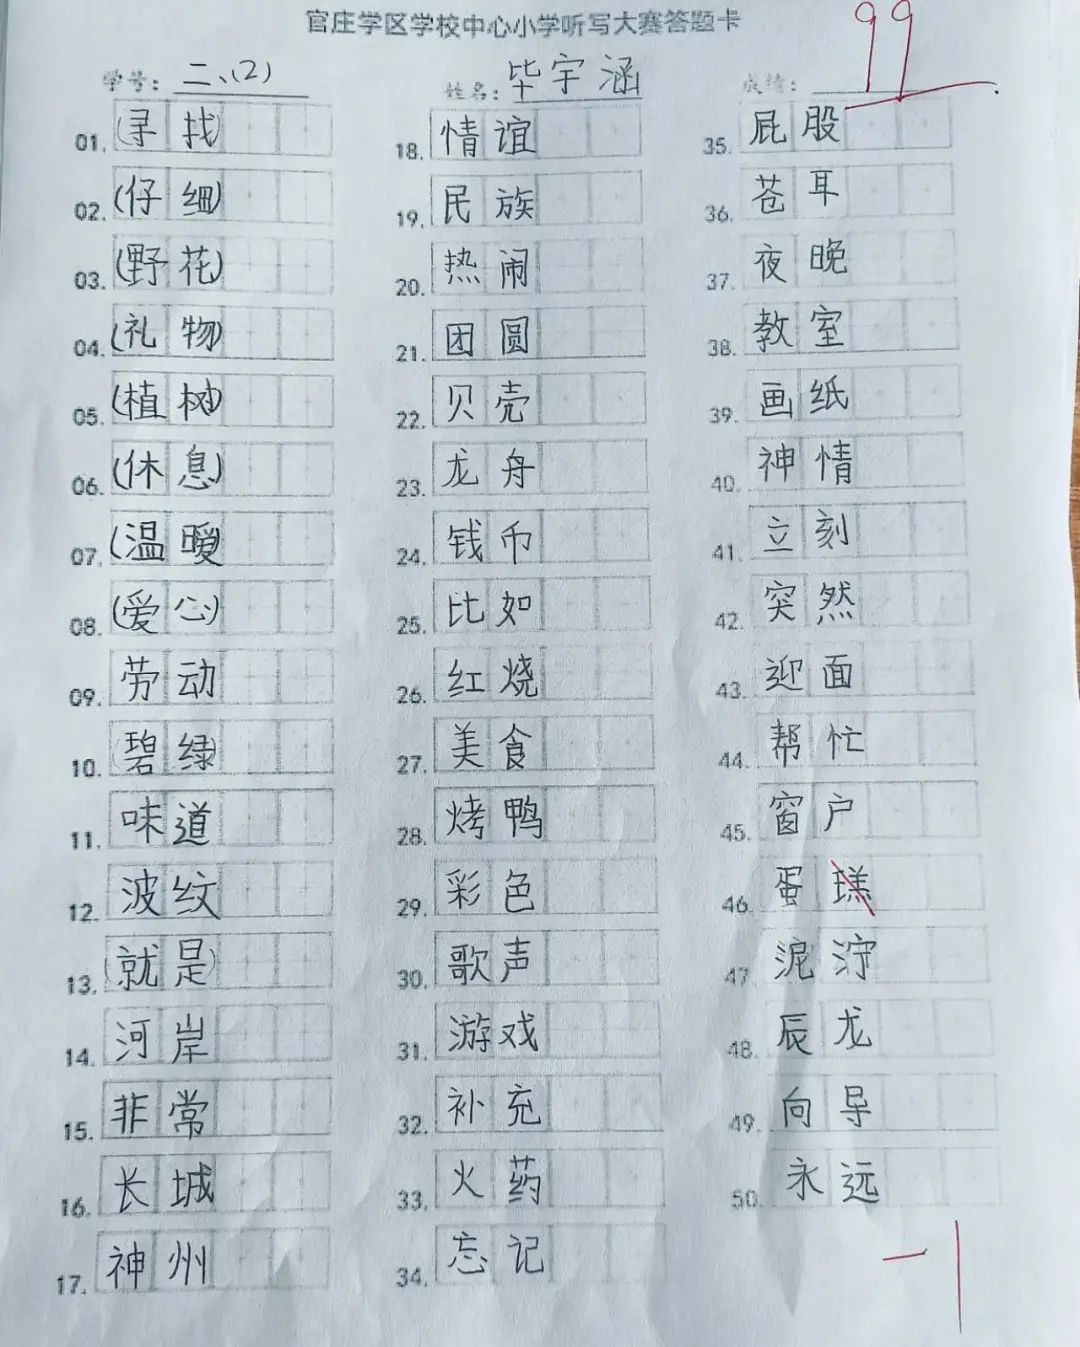 官庄学区学校中心小学听写大赛答题卡
学号：二、(2) 姓名：毕宇涵 成绩：99
01. (寻找)
02. (仔细)
03. (野花)
04. (礼物)
05. (植树)
06. (休息)
07. (温暖)
08. (爱心)
09. 劳动
10. (碧绿
11. 味道
12. 波纹
13. (就是)
14. 河岸
15. 非常
16. 长城
17. 神州
18. 情谊
19. 民族
20. 热闹
21. 团圆
22. 贝壳
23. 龙舟
24. 钱币
25. 比如
26. 红烧
27. 美食
28. 烤鸭
29. 彩色
30. 歌声
31. 游戏
32. 补充
33. 火药
34. 忘记
35. 屁股
36. 苍耳
37. 夜晚
38. 教室
39. 画纸
40. 神情
41. 立刻
42. 突然
43. 迎面
44. 帮忙
45. 窗户
46. 蛋
47. 泥泞
48. 辰龙
49. 向导
50. 永远
-1